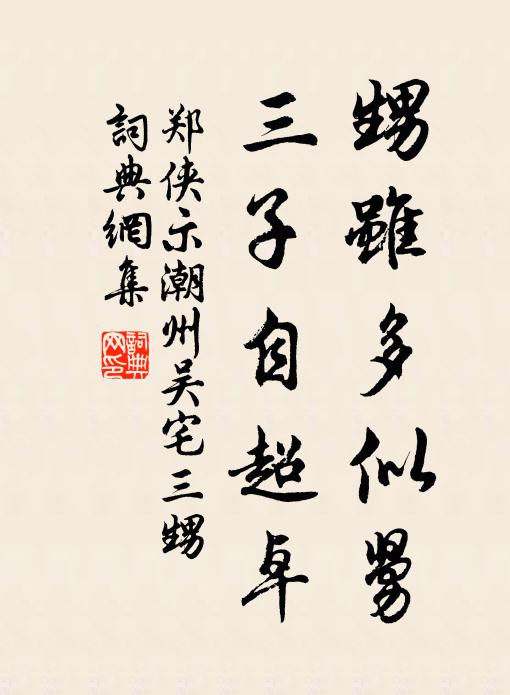 甥雖多似舅
三子自超卓
郑侠示潮州吴宅三甥
詞典網集
詞典网印